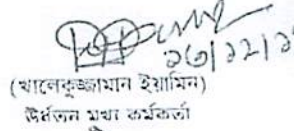 ১৩/১২/১
(খালেকুজ্জামান ইয়ামিন)
ঊর্ধ্বতন মুখ্য কর্মকর্তা